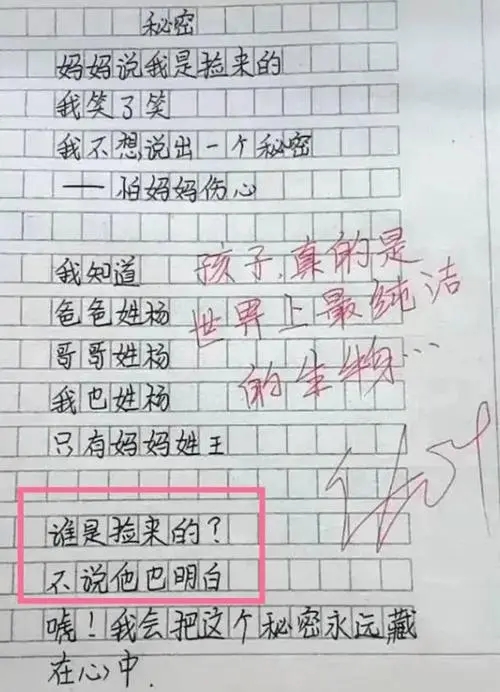 秘密
妈妈说我是捡来的
我笑了笑
我不想说出一个秘密
——怕妈妈伤心
我知道
爸爸姓杨
哥哥姓杨
我也姓杨
只有妈妈姓王
谁是捡来的?
不说他也明白
嘘!我会把这个秘密永远藏
在心中.
孩子,真的是
世界上最纯洁
的生物…